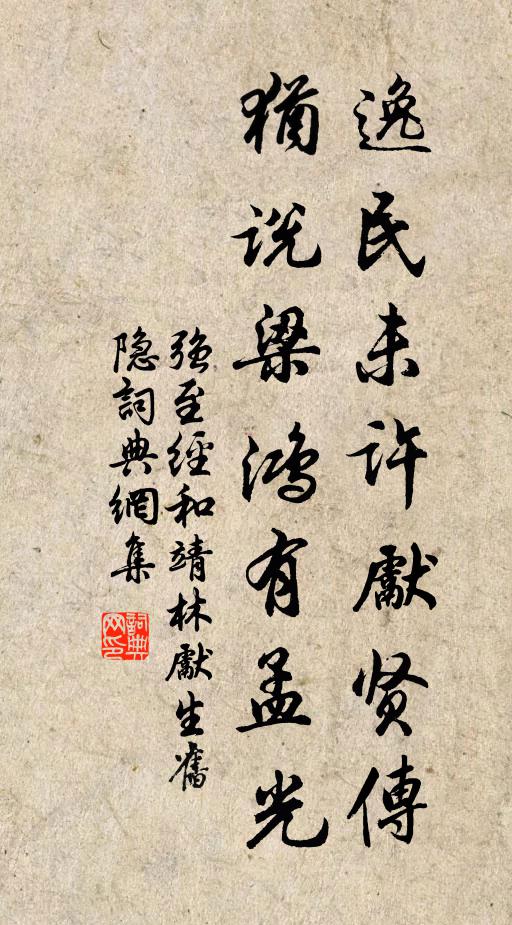 逸民未许獻贤傳
猶说梁鸿有孟光
强至經和靖林獻生舊
隐詞典網集
詞典网印